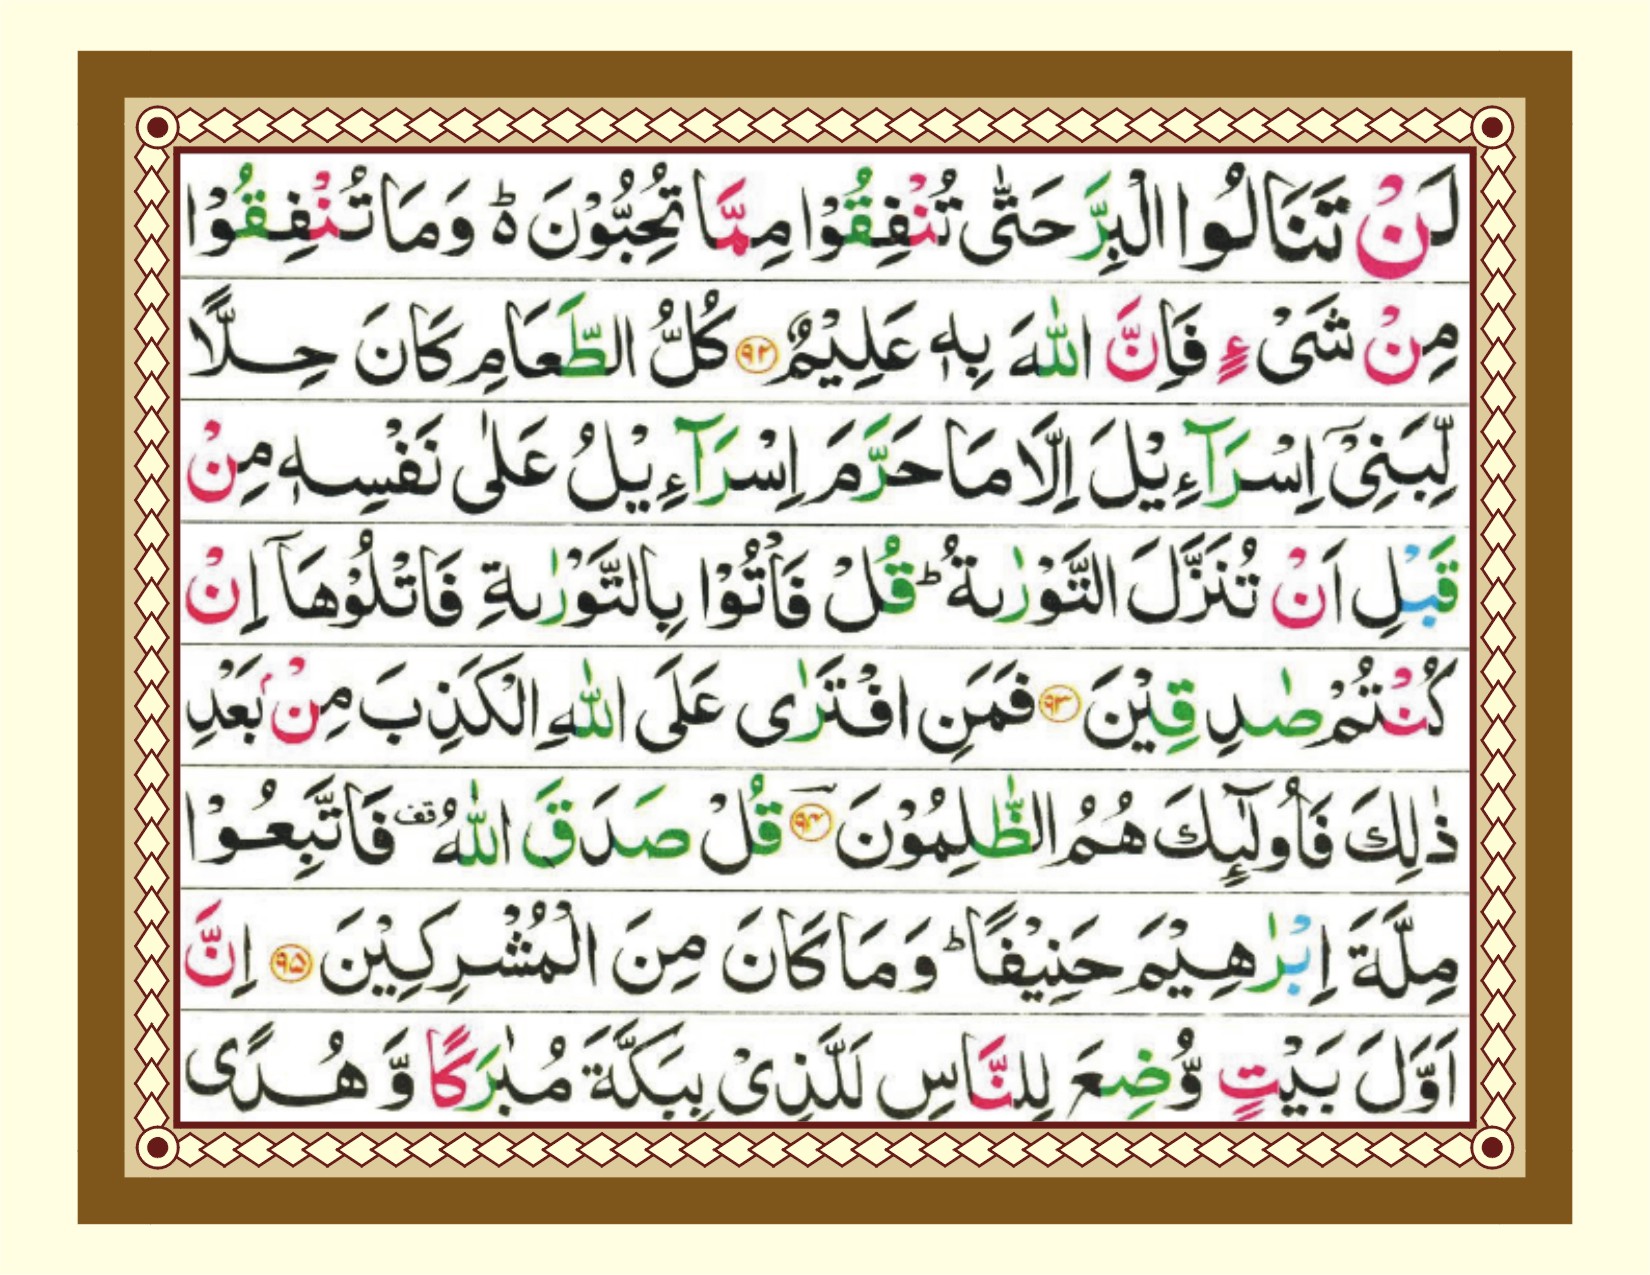 لَنْ تَنَالُوا الْبِرَّ حَتّٰى تُنْفِقُوْا مِمَّا تُحِبُّوْنَ ؕ۬ وَمَا تُنْفِقُوْا
مِنْ شَیْءٍ فَاِنَّ اللّٰهَ بِهٖ عَلِیْمٌ ۝۹۲ كُلُّ الطَّعَامِ كَانَ حِلًّا
لِّبَنِیْۤ اِسْرَآءِیْلَ اِلَّا مَا حَرَّمَ اِسْرَآءِیْلُ عَلٰى نَفْسِهٖ مِنْ
قَبْلِ اَنْ تُنَزَّلَ التَّوْرٰىةُ ؕ قُلْ فَاْتُوْا بِالتَّوْرٰىةِ فَاتْلُوْهَاۤ اِنْ
كُنْتُمْ صٰدِقِیْنَ ۝۹۳ فَمَنِ افْتَرٰى عَلَى اللّٰهِ الْكَذِبَ مِنْۢ بَعْدِ
ذٰلِكَ فَاُولٰٓىِٕكَ هُمُ الظّٰلِمُوْنَ ۝۹۴ قُلْ صَدَقَ اللّٰهُ قف فَاتَّبِعُوْا
مِلَّةَ اِبْرٰهِیْمَ حَنِیْفًا ؕ وَمَا كَانَ مِنَ الْمُشْرِكِیْنَ ۝۹۵ اِنَّ
اَوَّلَ بَیْتٍ وُّضِعَ لِلنَّاسِ لَلَّذِیْ بِبَكَّةَ مُبٰرَكًا وَّ هُدًى